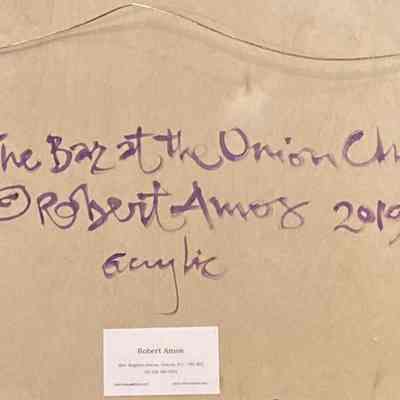 The Bar at the Union Clu
© Robert Amos 2019
acrylic
Robert Amos